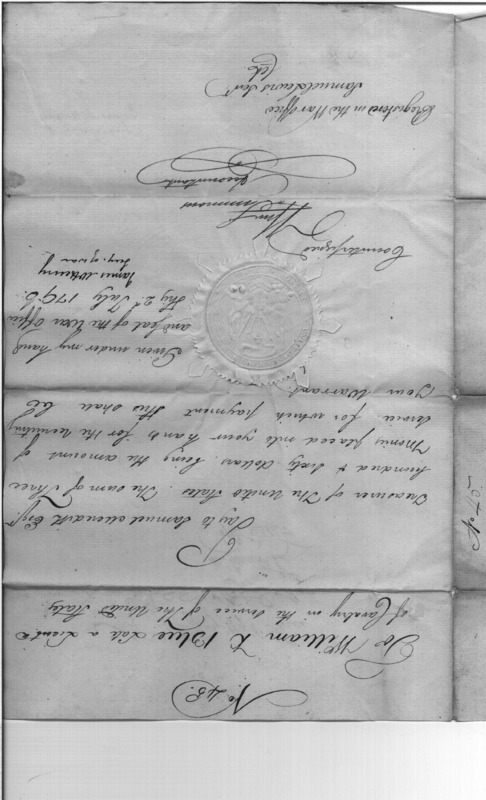 No. 48.
To William K Blue Esq. a Lieut.
of Cavalry in the service of The United States.
Pay to Samuel Meredith Esqr.
Treasurer of The United States. The sum of Three
hundred & sixty dollars. being the amount of
Monies placed into your hands for the recruiting
service for which payment this shall be
your Warrant.
Given under my hand
and seal of the War Office
this 2d. July 1796.
James McHenry
Secy. of war
Countersigned
Wm. Simmons
Accountant
Registered in the War office
Samuel Lewis Senr.
Clk
No 48